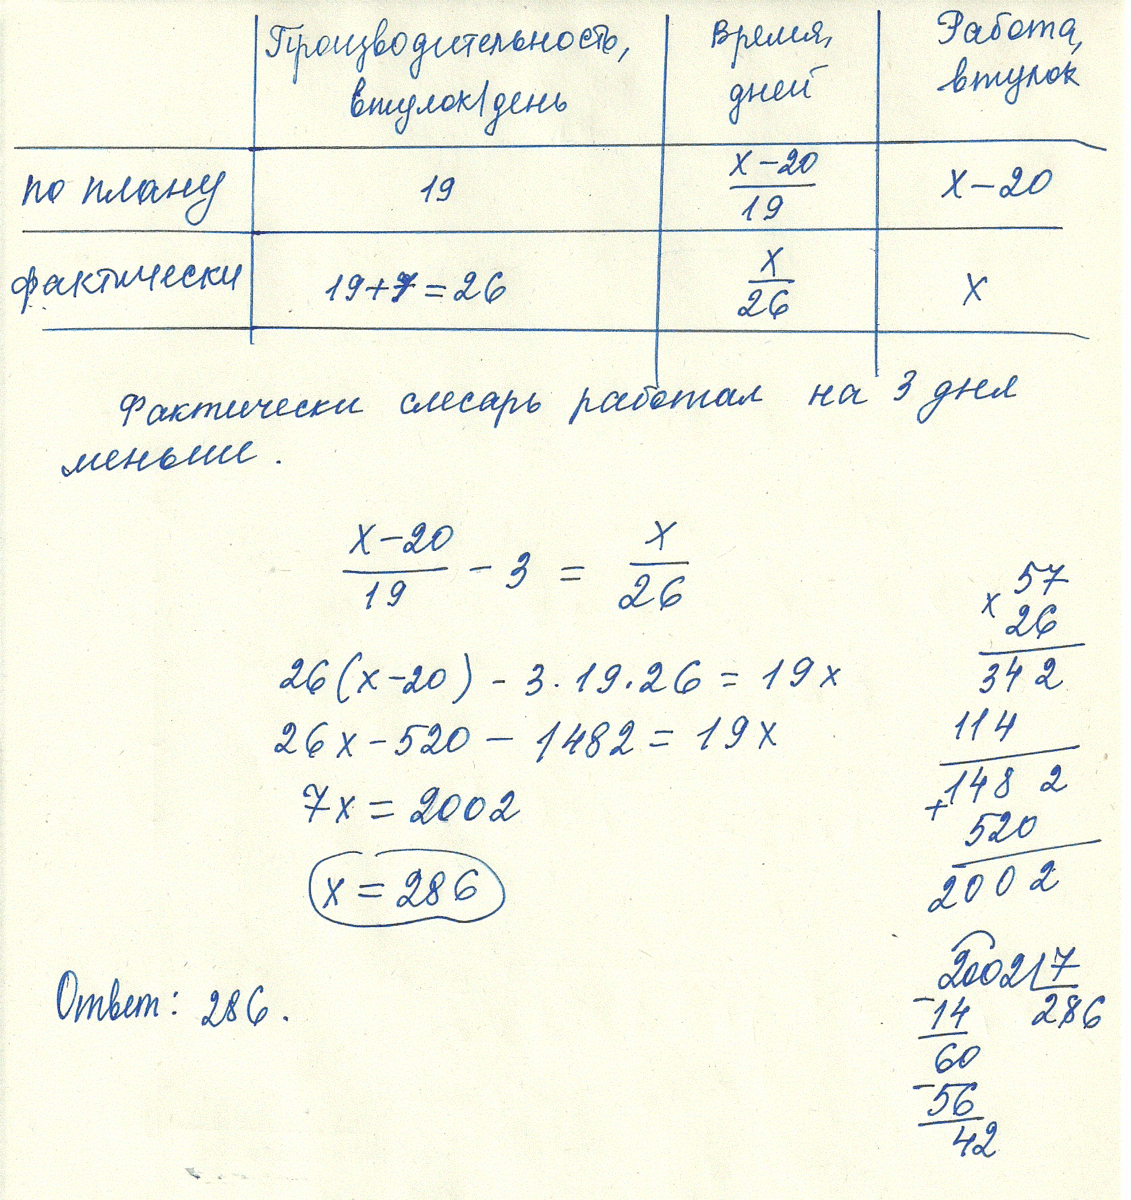 Производительность, втулок/день
Время, дней
Работа, втулок
по плану
19
x-20/19
x-20
фактически
19+7=26
x/26
x
Фактически слесарь работал на 3 дня
меньше.
x-20/19 - 3 = x/26
26(x-20) - 3·19·26 = 19x
26x - 520 - 1482 = 19x
7x = 2002
x = 286
Ответ: 286.
57
x 26
342
114
1482
+
520
2002
2002|7
-14 286
60
-56
42